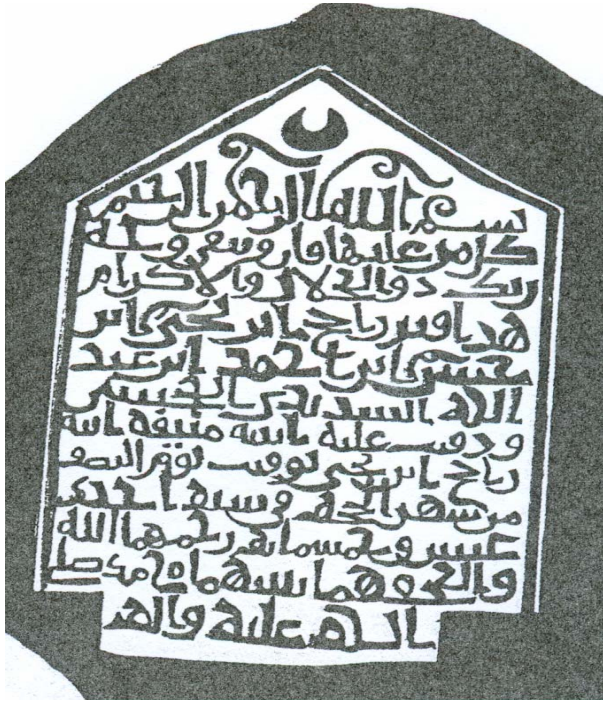 بسم الله الرحمن الرحيم
كل من عليها فان ويبقى وجه
ربك ذو الجلال والاكرام
هذا قبر رباح ابن يحيى ابن
ابن احمد ابن عبد
الله
ودفنت عليه ابنته منيفة ابنة
رباح ابن يحيى توفيت يوم النصف
من شهر الحجة في سنة احدى
وخمسمائة رحمهما الله
والحقهما بنبيهما محمد صلى
الله عليه واله